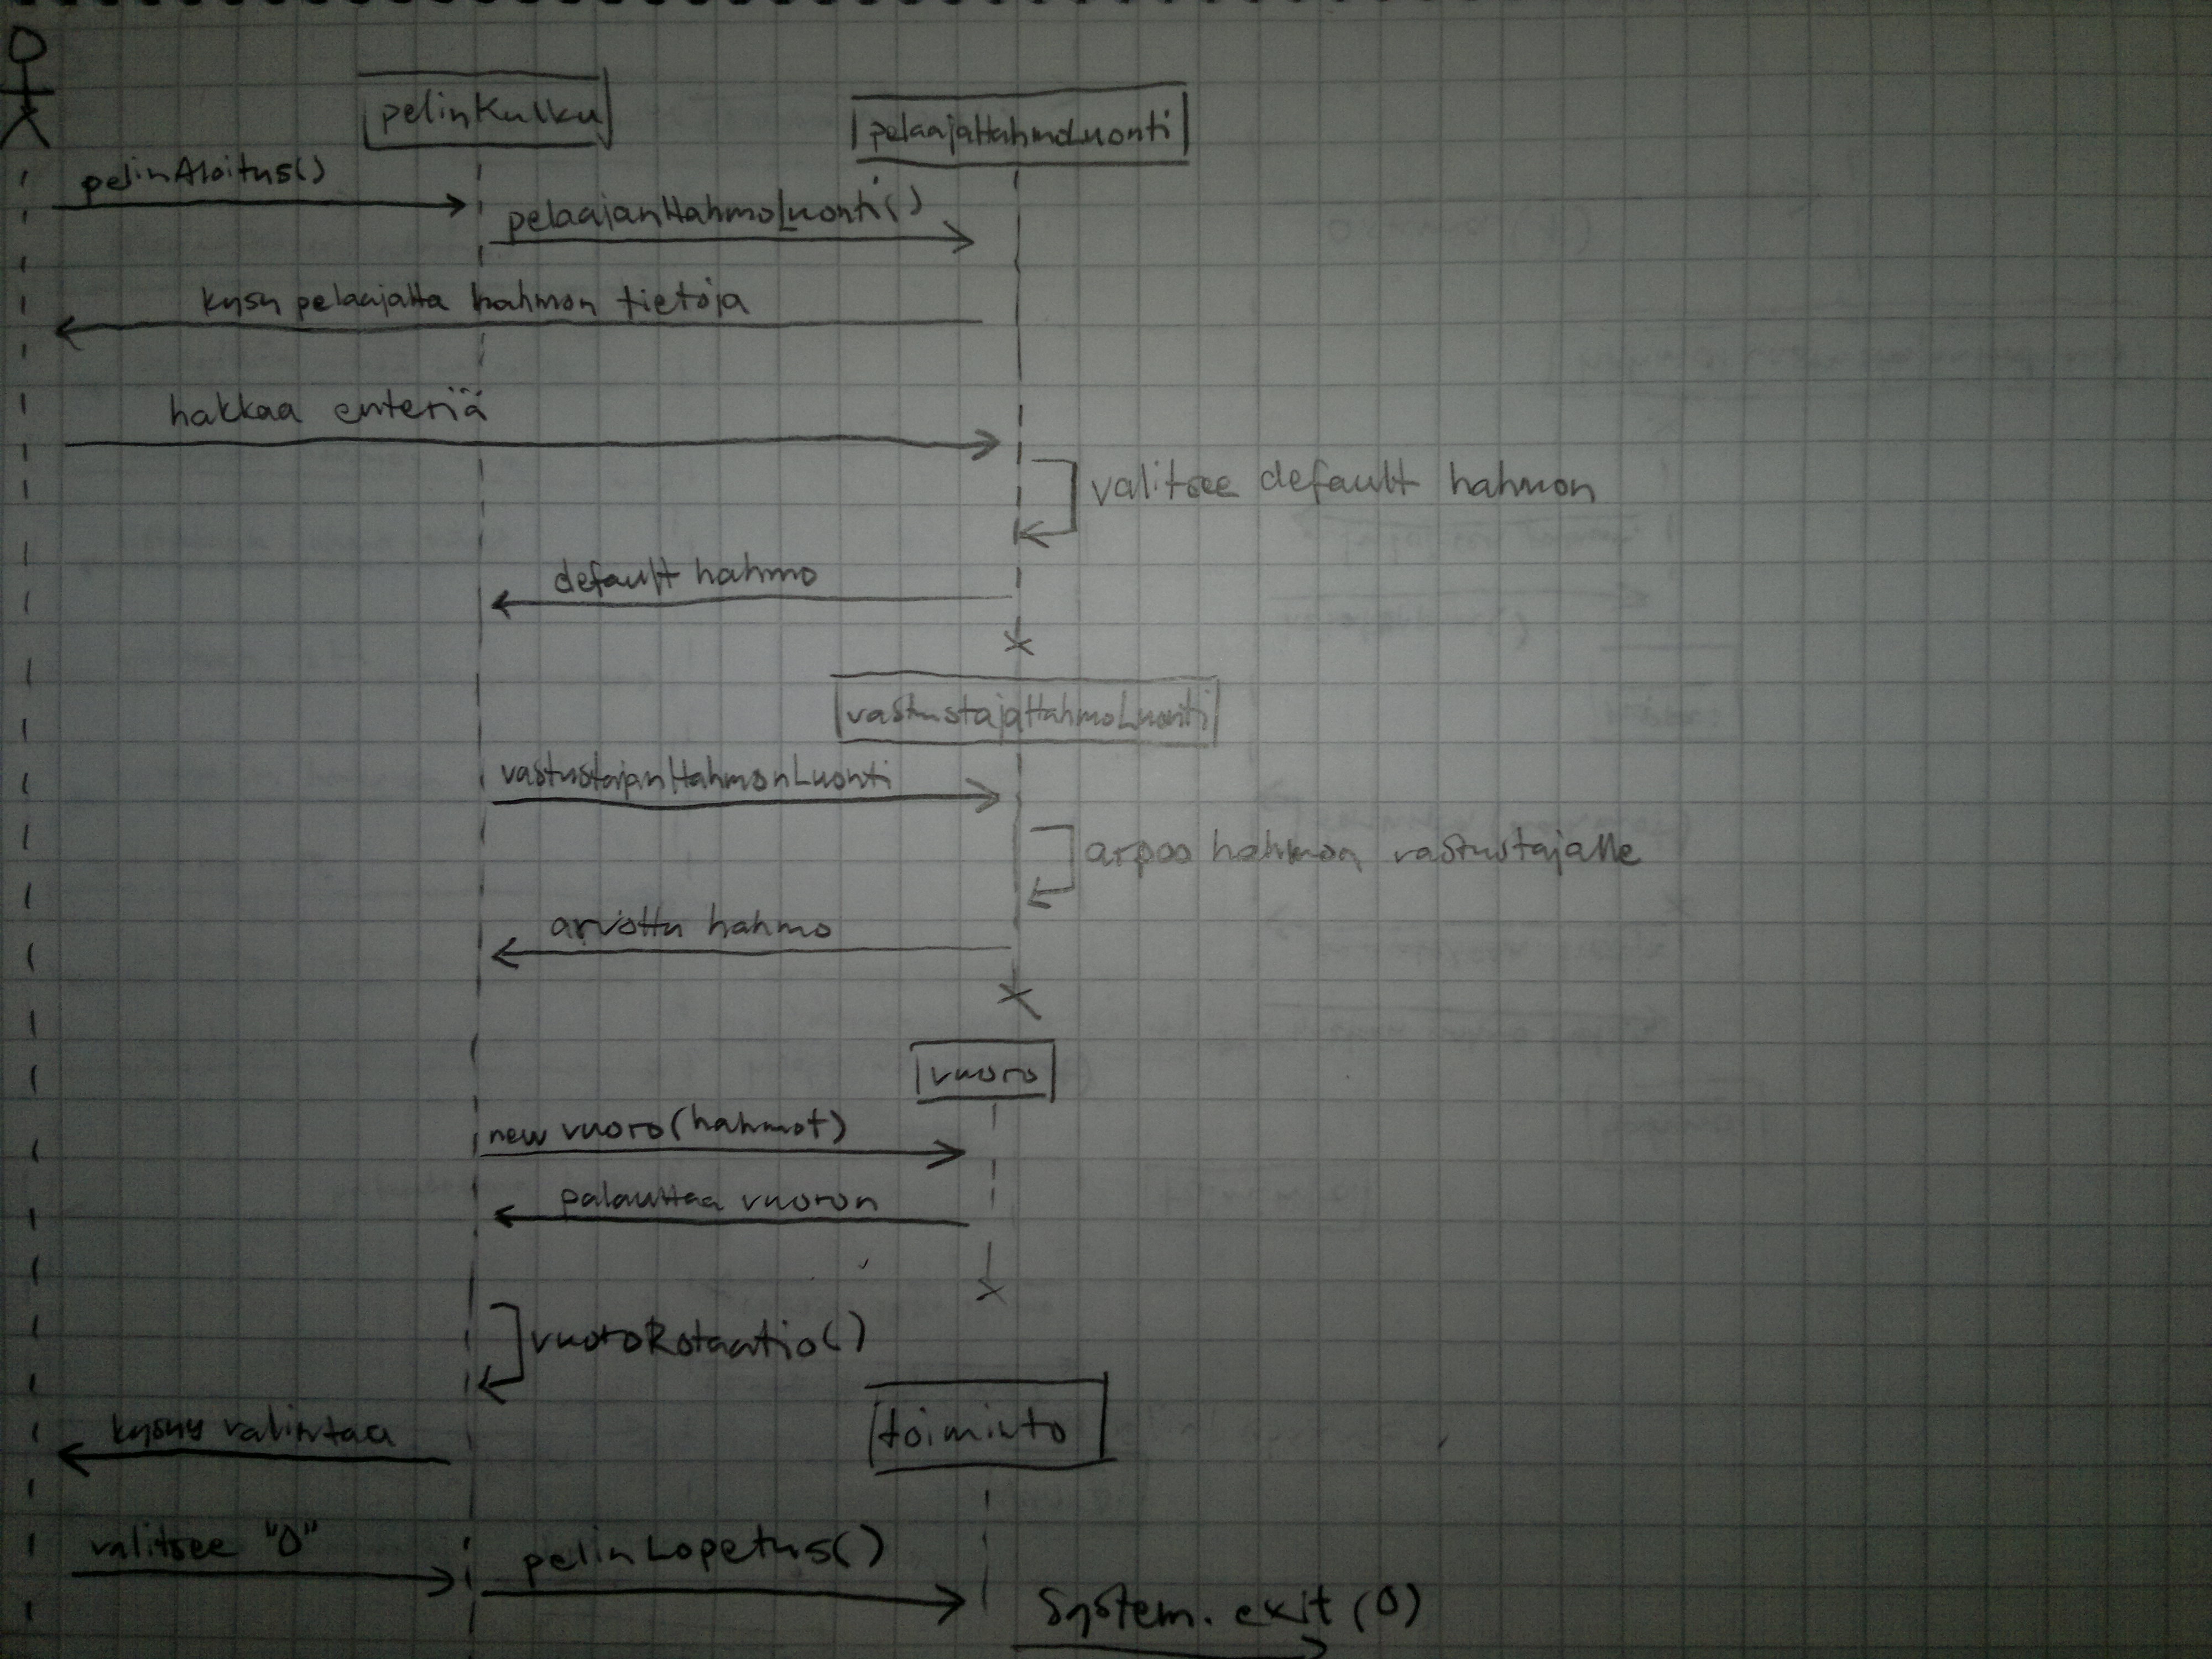 pelinKulku
pelaajaHahmoLuonti
pelinAloitus()
pelaajanHahmoLuonti()
kysy pelaajalta hahmon tietoja
hakkaa enteriä
valitsee default hahmon
default hahmo
vastustajaHahmoLuonti
vastustajanHahmonLuonti
arpoo hahmon vastustajalle
arvottu hahmo
vuoro
new vuoro(hahmot)
palauttaa vuoron
vuoroRotaatio()
toiminto
kysyy valintaa
valitsee "0"
pelinLopetus()
System.exit(0)